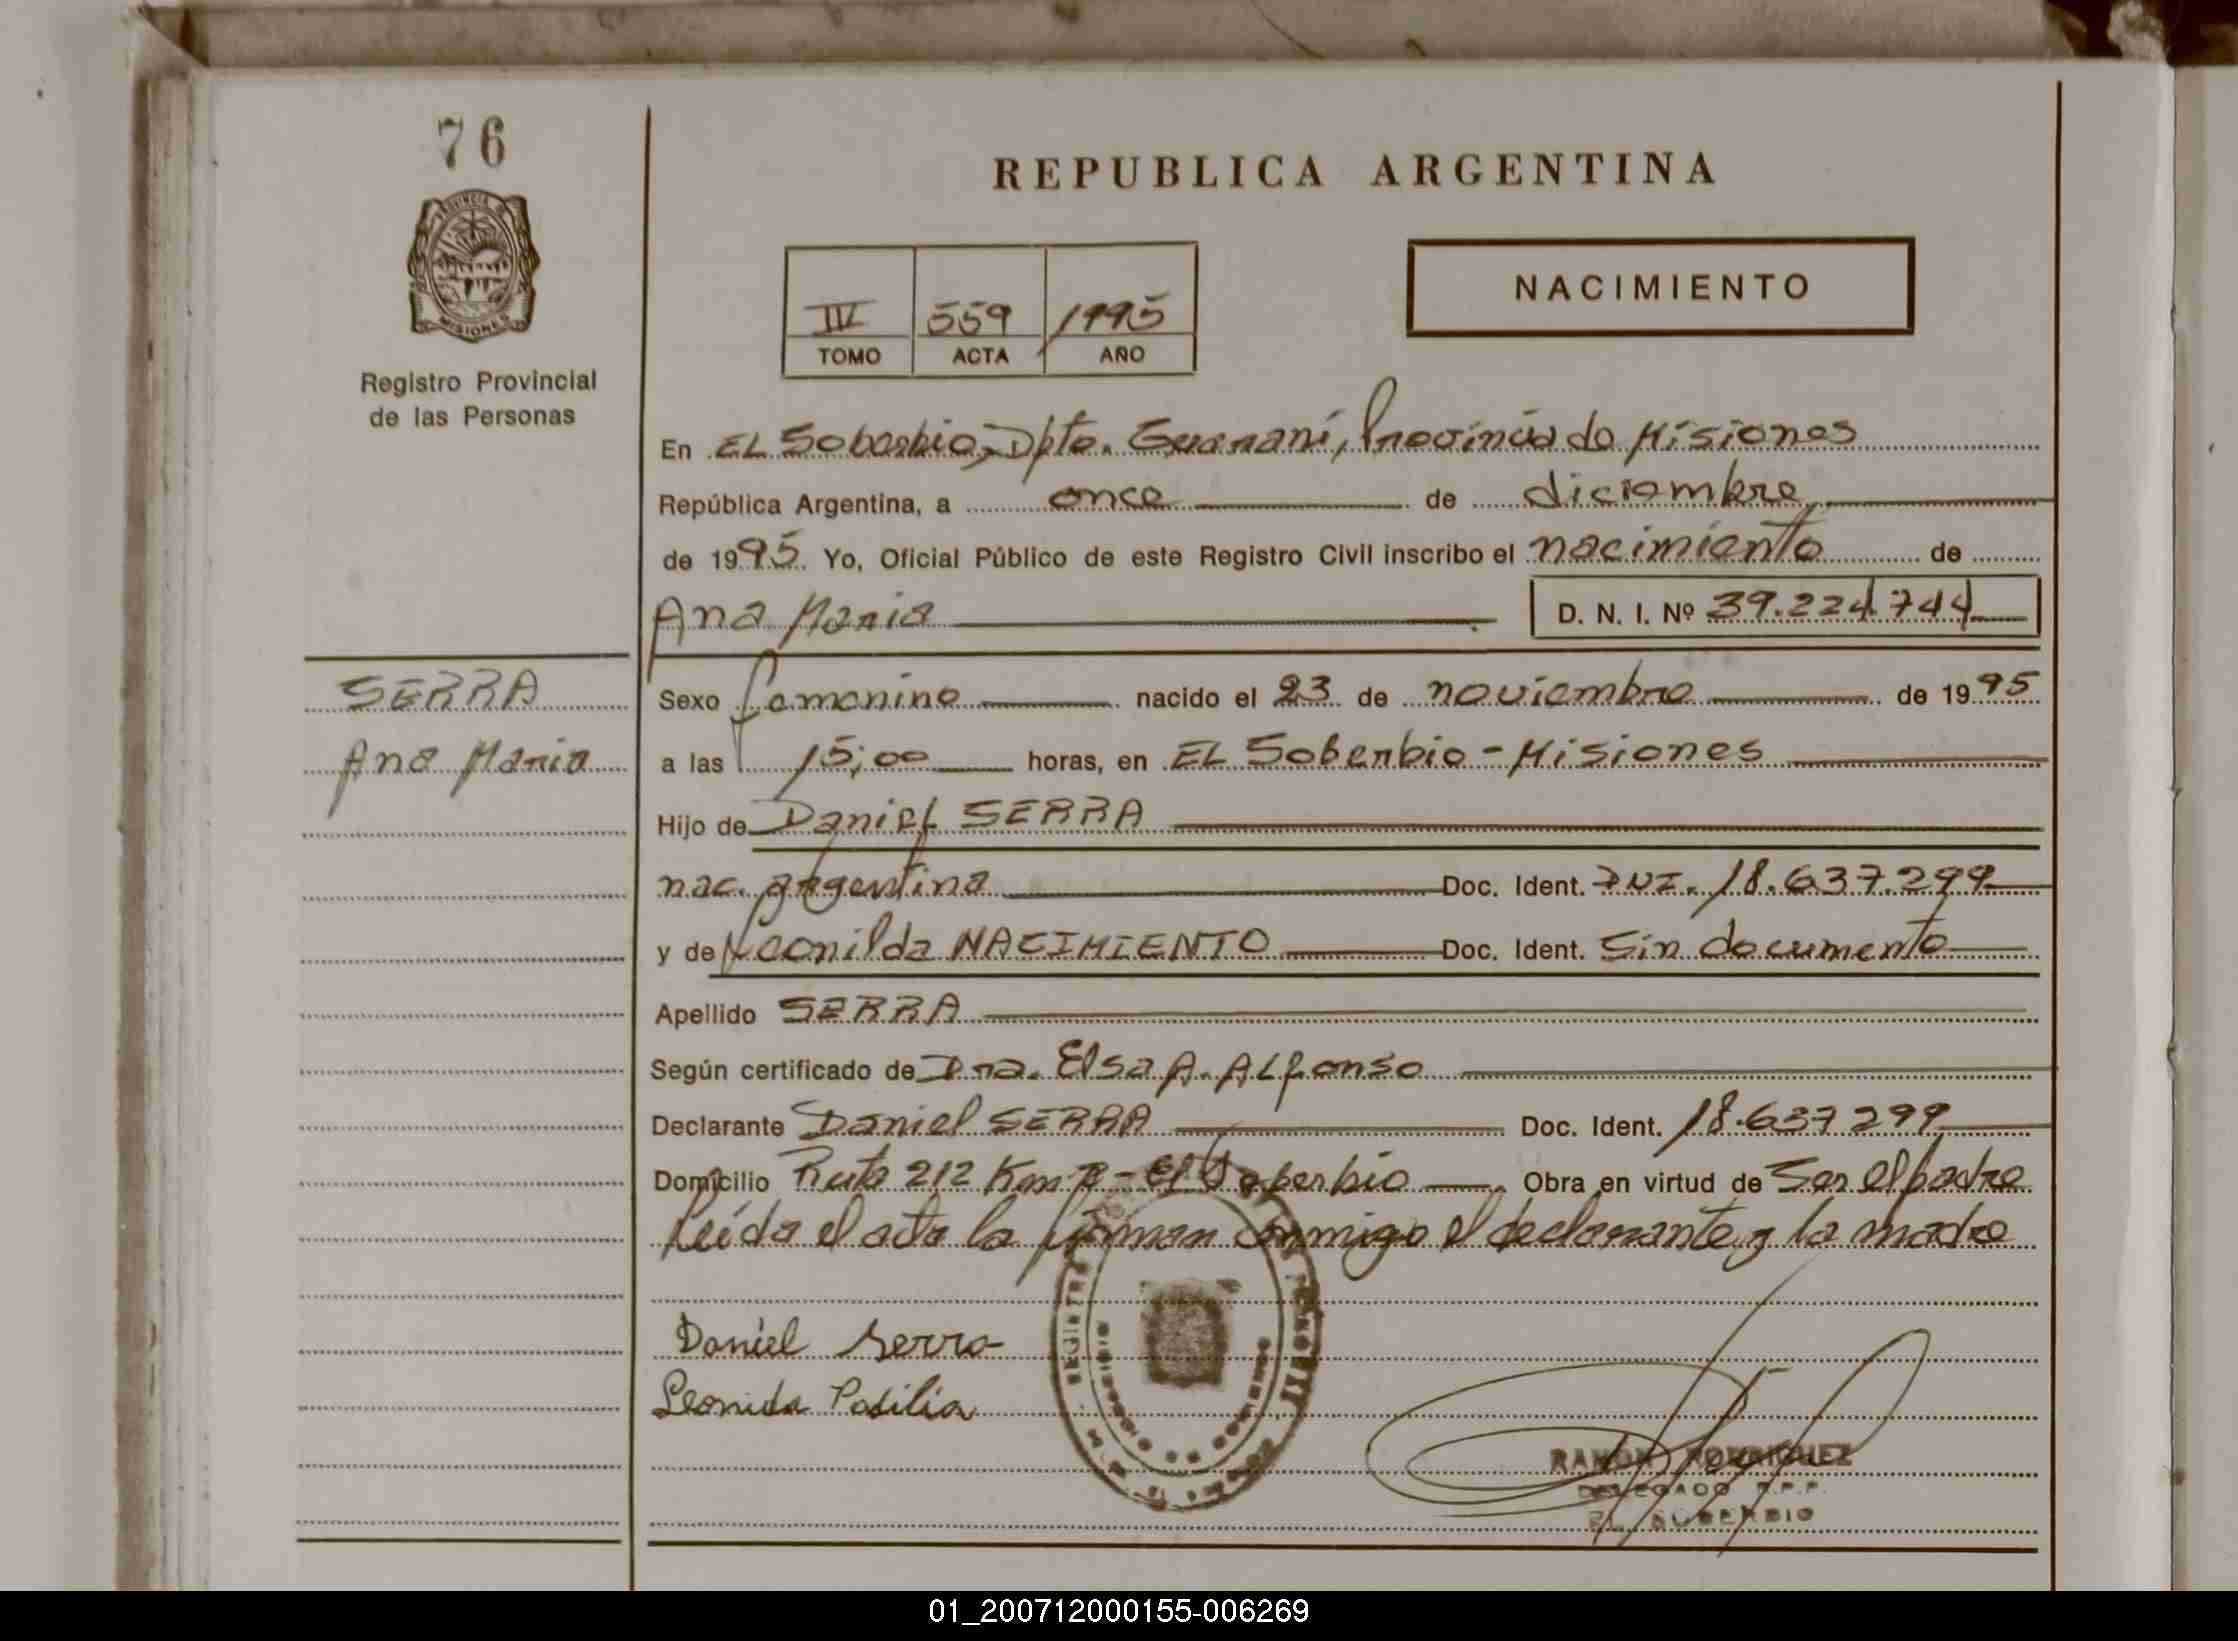 76
PROVINCIA DE
MISIONES
Registro Provincial
de las Personas
REPUBLICA ARGENTINA
NACIMIENTO
III 559 1995
TOMO ACTA AÑO
En EL Soberbio, Dpto. Guaraní, Provincia de Misiones
República Argentina, a once de diciembre
de 1995. Yo, Oficial Público de este Registro Civil inscribo el nacimiento de
Ana Maria D. N. I. Nº 39.224.744
SERRA
Ana Maria
Sexo femenino nacido el 23 de noviembre de 1995
a las 15;00 horas, en EL Soberbio - Misiones
Hijo de Daniel SERRA
nac. argentina Doc. Ident. DNI. 18.637.299
y de Leonilda NACIMIENTO Doc. Ident. Sin documento
Apellido SERRA
Según certificado de Dra. Elsa A. ALfonso
Declarante Daniel SERRA Doc. Ident. 18.637299
Domicilio Ruta 212 Km - El Soberbio Obra en virtud de Ser el padre
Leída el acta la firman conmigo el declarante y la madre
Daniel Serra
Leonida Padilia
RAMON RODRIGUEZ
DELEGADO R.P.P.
EL SOBERBIO
01_200712000155-006269